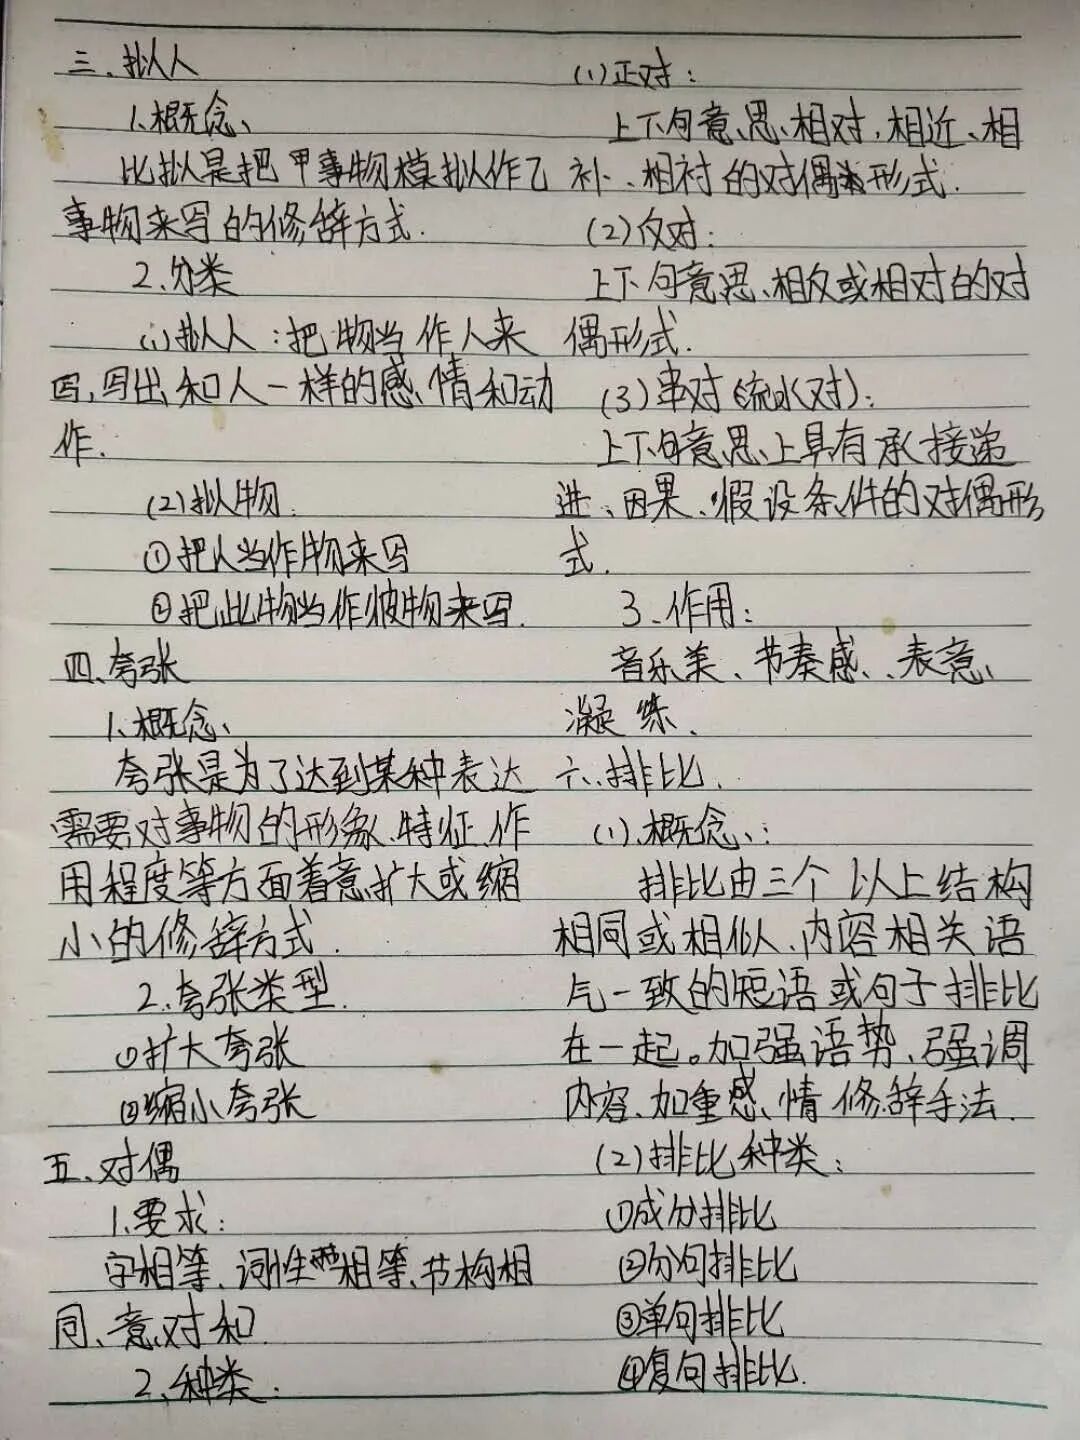 三、拟人
1、概念、
比拟是把甲事物模拟作乙
事物来写的修辞方式.
2、分类
(1)拟人：把物当作人来
写,写出和人一样的感、情和动
作.
(2)拟物.
①把人当作物来写
②把此物当作彼物来写.
四、夸张
1、概念、
夸张是为了达到某种表达
需要对事物的形象、特征、作
用程度等方面着意扩大或缩
小的修辞方式.
2、夸张类型.
①扩大夸张
②缩小夸张
五、对偶
1、要求:
字相等、词性相等、节构相
同、意对和
2、种类:
(1)正对:
上下句意、思、相对,相近、相
补、相衬的对偶形式.
(2)反对:
上下句意思、相反或相对的对
偶形式.
(3)串对(流水对):
上下句意思、上具有承接递
进、因果、假设条件的对偶形
式.
3、作用:
音乐美、节奏感、、表意、
凝练、
六、排比.
(1)、概念、:
排比由三个以上结构
相同或相似、内容相关语
气一致的短语或句子排比
在一起。加强语势、强调
内容、加重感、情修辞手法.
(2)排比种类:
①成分排比
②分句排比
③单句排比
④复句排比.